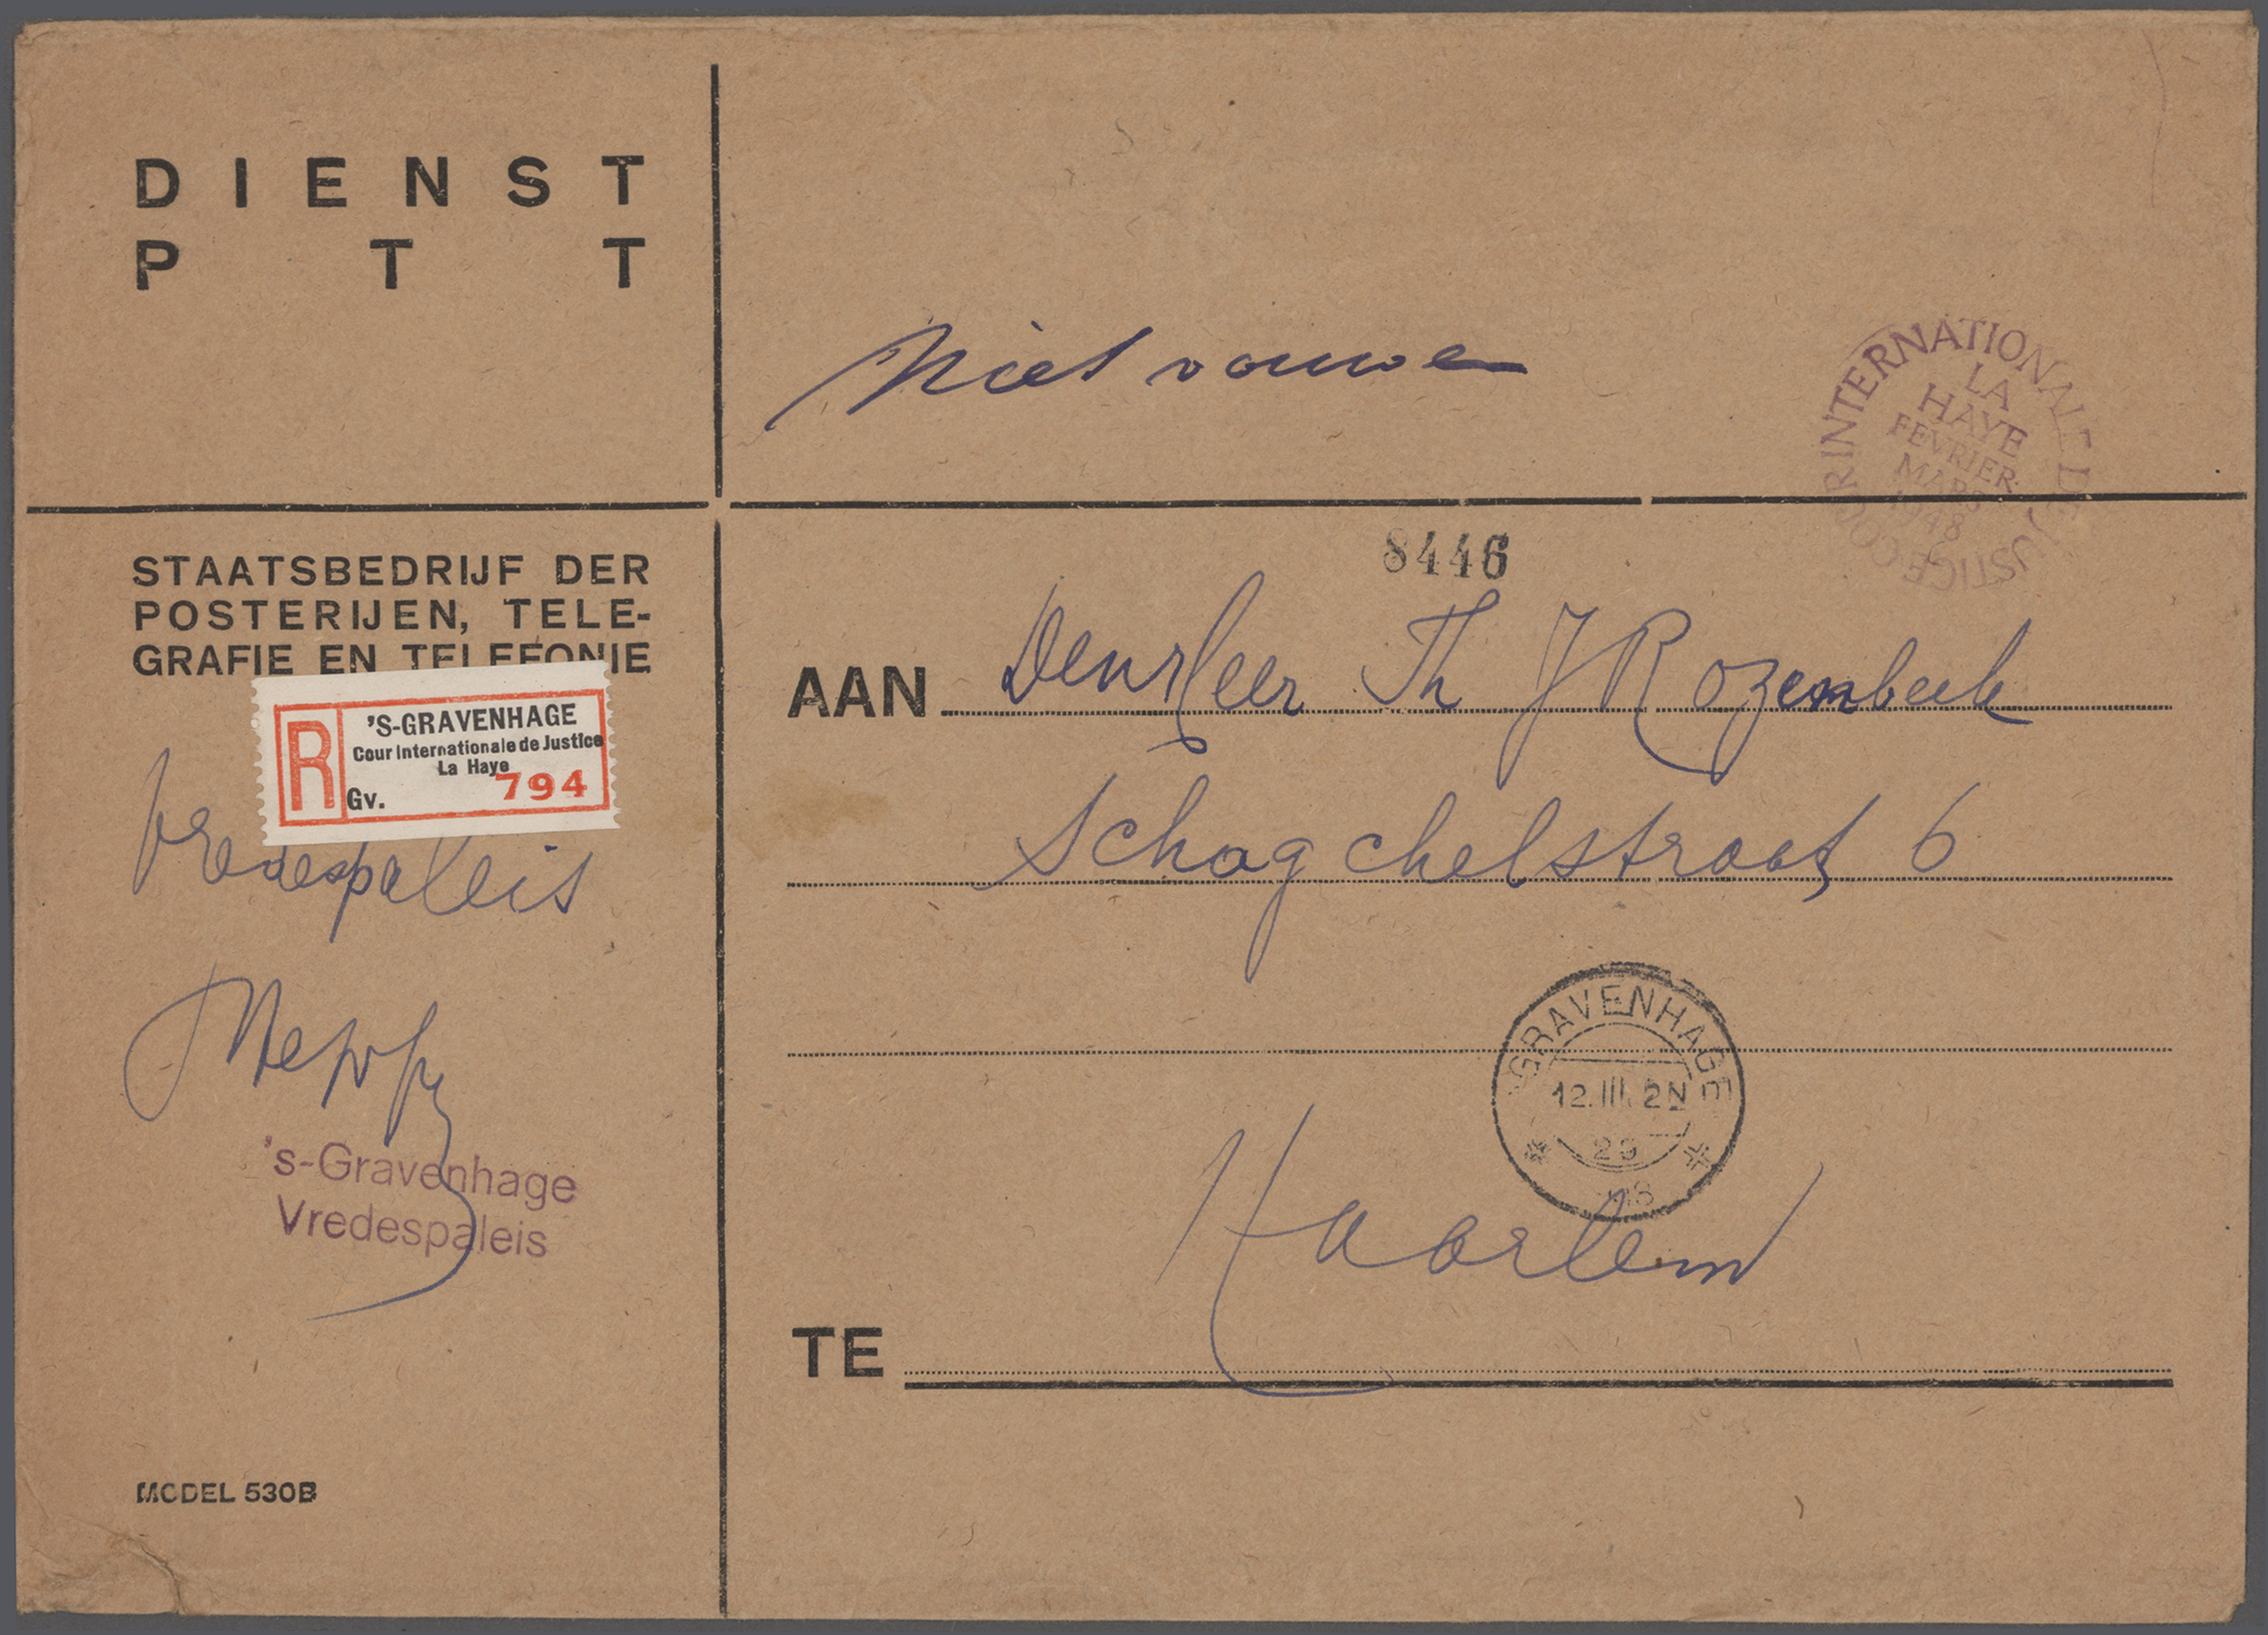 DIENST
PTT
Niet vouwen
COUR INTERNATIONALE DE JUSTICE
LA
HAYE
FEVRIER
MARS
1948
STAATSBEDRIJF DER
POSTERIJEN, TELE-
GRAFIE EN TELEFONIE
R
'S-GRAVENHAGE
Cour Internationale de Justice
La Haye
Gv. 794
Vredespaleis
's-Gravenhage
Vredespaleis
MODEL 530B
8446
AAN Den Heer Th J Rozenbeek
Schagchelstraat 6
'S GRAVENHAGE
12.III. 2N
Haarlem
TE